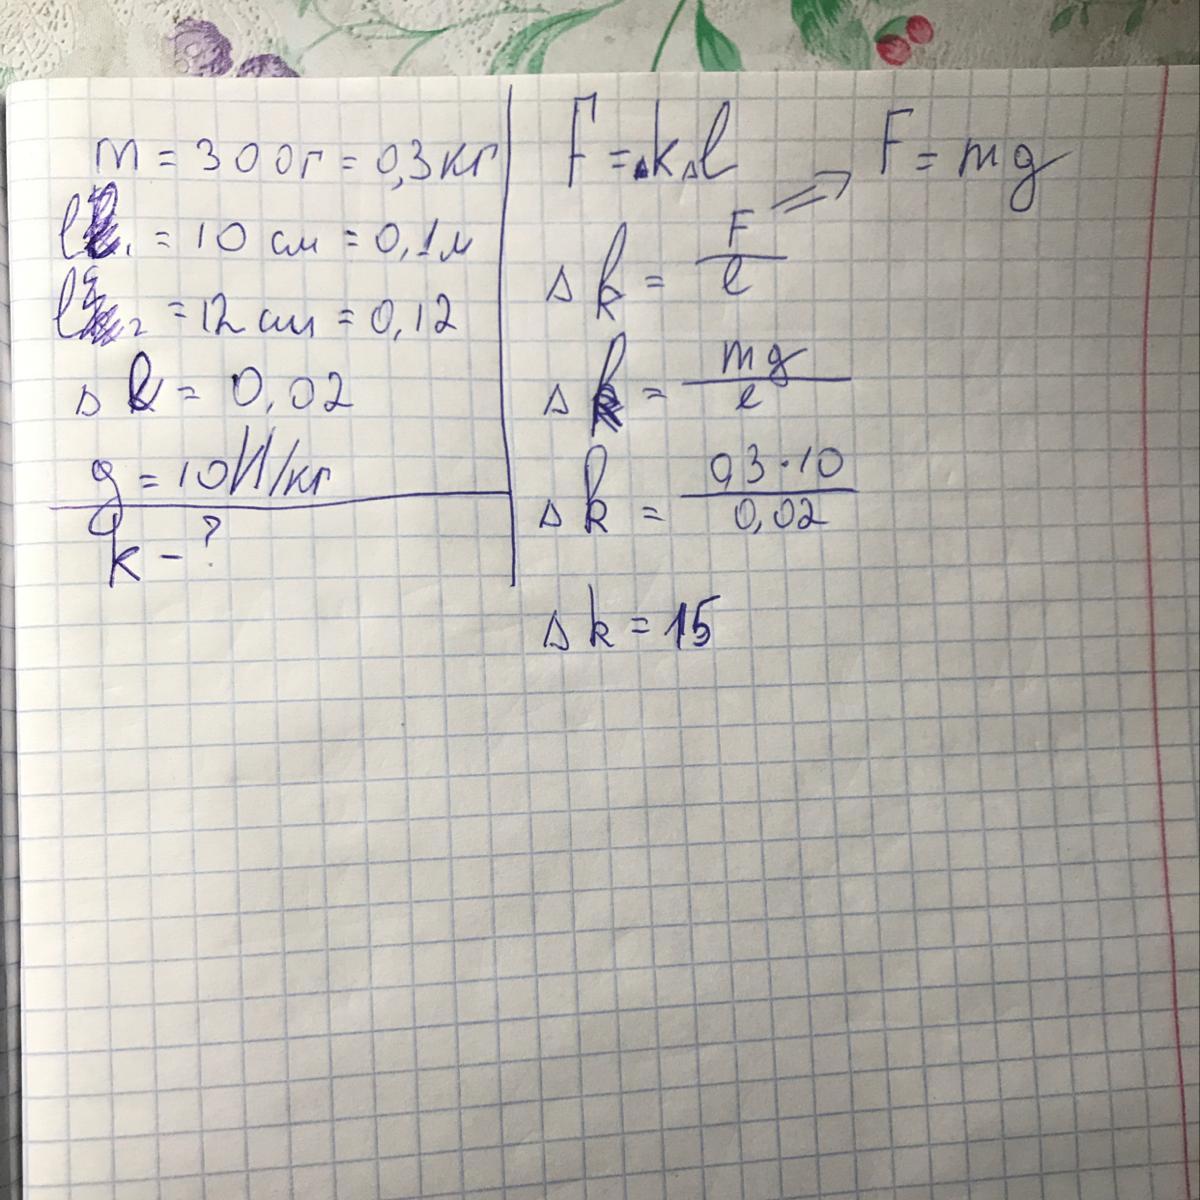 m = 300г = 0,3кг
l₁ = 10 см = 0,1м
l₂ = 12 см = 0,12
Δ l = 0,02
g = 10Н/кг
k - ?
F = k Δ l
F = mg
Δ k = F / l
Δ k = mg / l
Δ k = 0,3 · 10 / 0,02
Δ k = 15